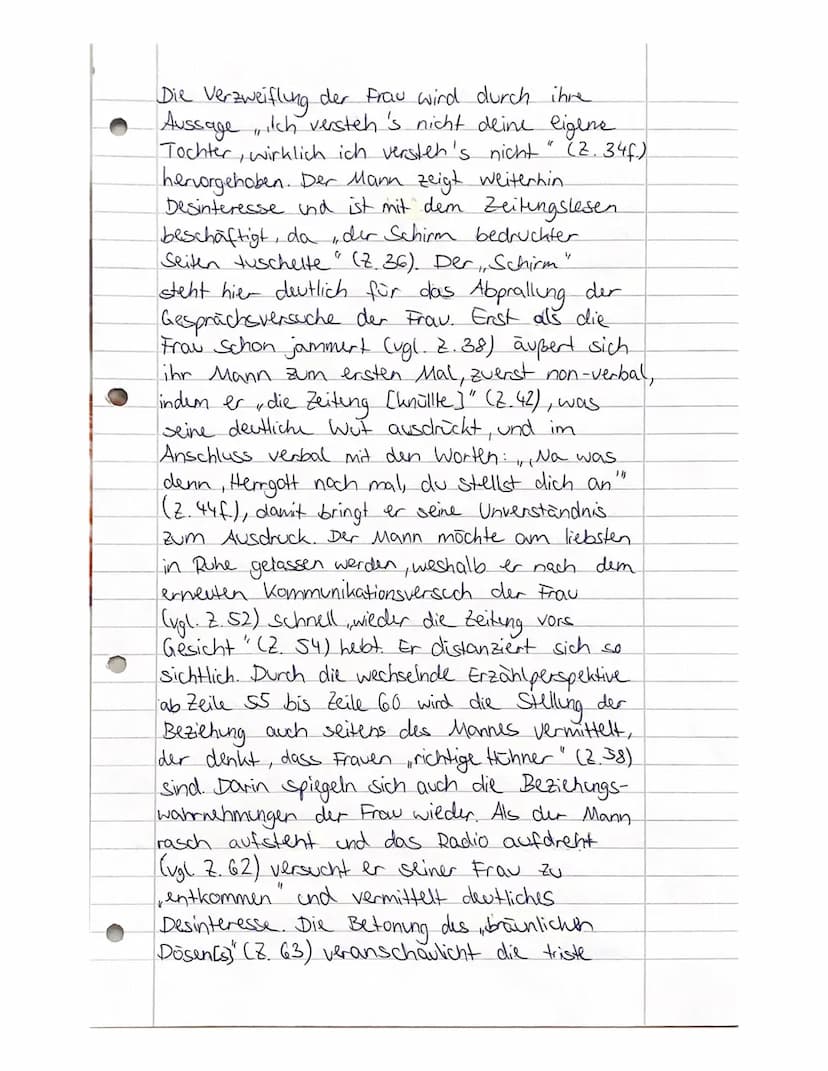 Die Verzweiflung der Frau wird durch ihre
Aussage „ich versteh's nicht deine eigene
Tochter, wirklich ich versteh's nicht" (Z. 34f.)
hervorgehoben. Der Mann zeigt weiterhin
Desinteresse und ist mit dem Zeitungslesen
beschäftigt, da „der Schirm bedruckter
Seiten tuschelte" (Z. 36). Der „Schirm"
steht hier deutlich für das Abprallung der
Gesprächsversuche der Frau. Erst als die
Frau schon jammert (vgl. Z. 38) äußert sich
ihr Mann zum ersten Mal, zuerst non-verbal,
indem er „die Zeitung [knüllte]" (Z. 42), was
seine deutliche Wut ausdrückt, und im
Anschluss verbal mit den Worten: „,Na was
denn, Herrgott noch mal, du stellst dich an'"
(Z. 44f.), damit bringt er seine Unverständnis
zum Ausdruck. Der Mann möchte am liebsten
in Ruhe gelassen werden, weshalb er nach dem
erneuten Kommunikationsversuch der Frau
(vgl. Z. 52) schnell „wieder die Zeitung vors
Gesicht" (Z. 54) hebt. Er distanziert sich so
sichtlich. Durch die wechselnde Erzählperspektive
ab Zeile 55 bis Zeile 60 wird die Stellung der
Beziehung auch seitens des Mannes vermittelt,
der denkt, dass Frauen „richtige Hühner" (Z. 38)
sind. Darin spiegeln sich auch die Beziehungs-
wahrnehmungen der Frau wieder. Als der Mann
rasch aufsteht und das Radio aufdreht
(vgl. Z. 62) versucht er seiner Frau zu
„entkommen" und vermittelt deutliches
Desinteresse. Die Betonung des „bräunlichen
Dösen[s]" (Z. 63) veranschaulicht die triste